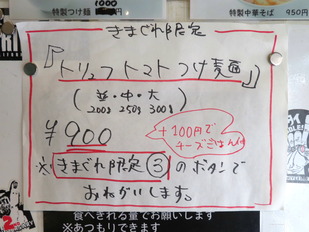 特製つけ麺
特製中華そば 950円
きまぐれ限定
『トリュフトマトつけ麺』
(並・中・大)
200g 250g 300g
¥900
+100円で
チーズごはん付
※きまぐれ限定③のボタンで
おねがいします。
食べきれる量でお願いします
※あつもりできます